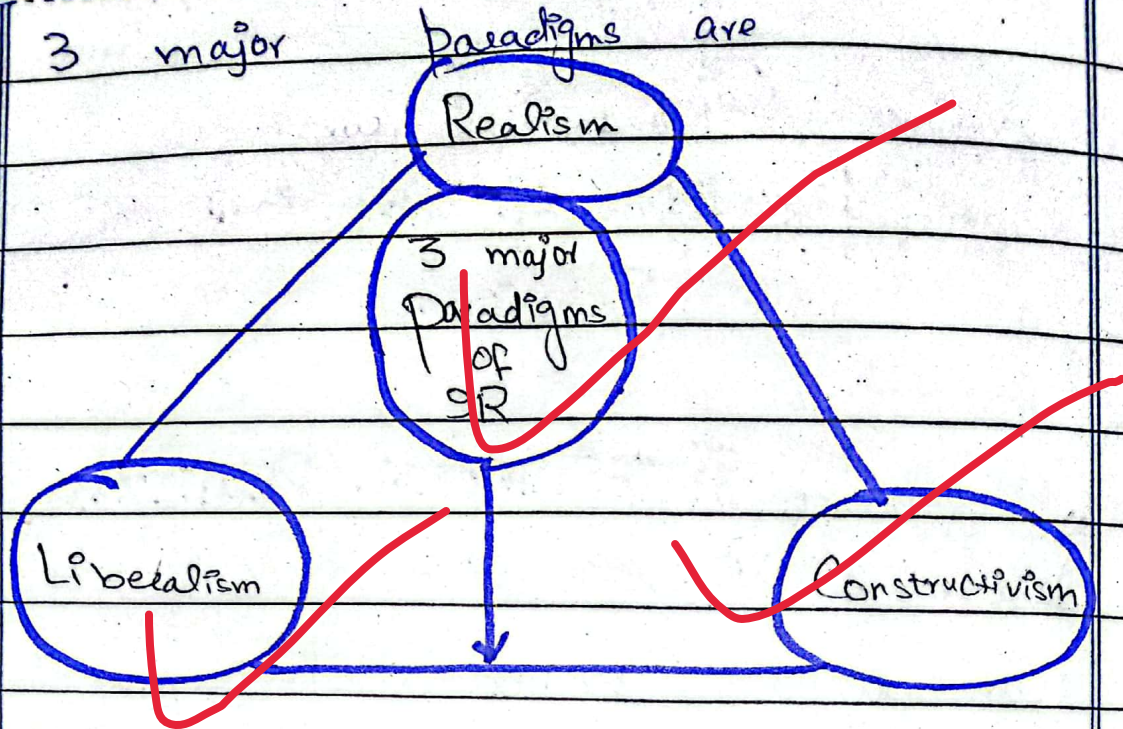 3 major paradigms are
Realism
3 major
paradigms
of
IR
Liberalism
Constructivism